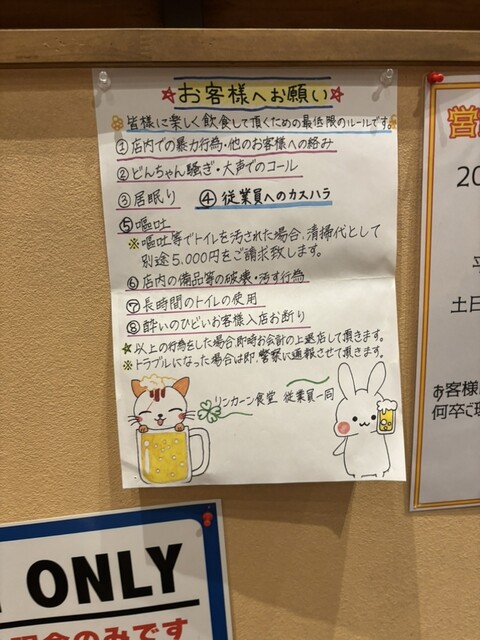 ☆お客様へお願い☆
皆様に楽しく飲食して頂くための最低限のルールです。
①店内での暴力行為・他のお客様への絡み
②どんちゃん騒ぎ・大声でのコール
③居眠り ④従業員へのカスハラ
⑤嘔吐
※嘔吐等でトイレを汚された場合、清掃代として
別途5.000円をご請求致します。
⑥店内の備品等の破壊・汚す行為
⑦長時間のトイレの使用
⑧酔いのひどいお客様入店お断り
★以上の行為をした場合即時お会計の上退店して頂きます。
※トラブルになった場合は即、警察に通報させて頂きます。
リンカーン食堂 従業員一同
営
20
土日
お客様
何卒ご理
ONLY
現金のみです